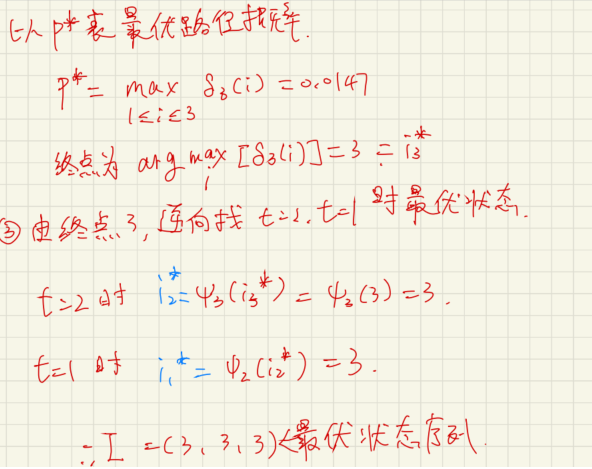 以 P* 表最优路径概率.
P* = max δ₃(i) = 0.0147
1≤i≤3
终点为 arg max [δ₃(i)] = 3 = i₃*
i
③ 由终点3,逆向找 t=2, t=1 时最优状态.
t=2 时 i₂* = ψ₃(i₃*) = ψ₃(3) = 3.
t=1 时 i₁* = ψ₂(i₂*) = 3.
∴ I =(3,3,3)<最优状态序列.